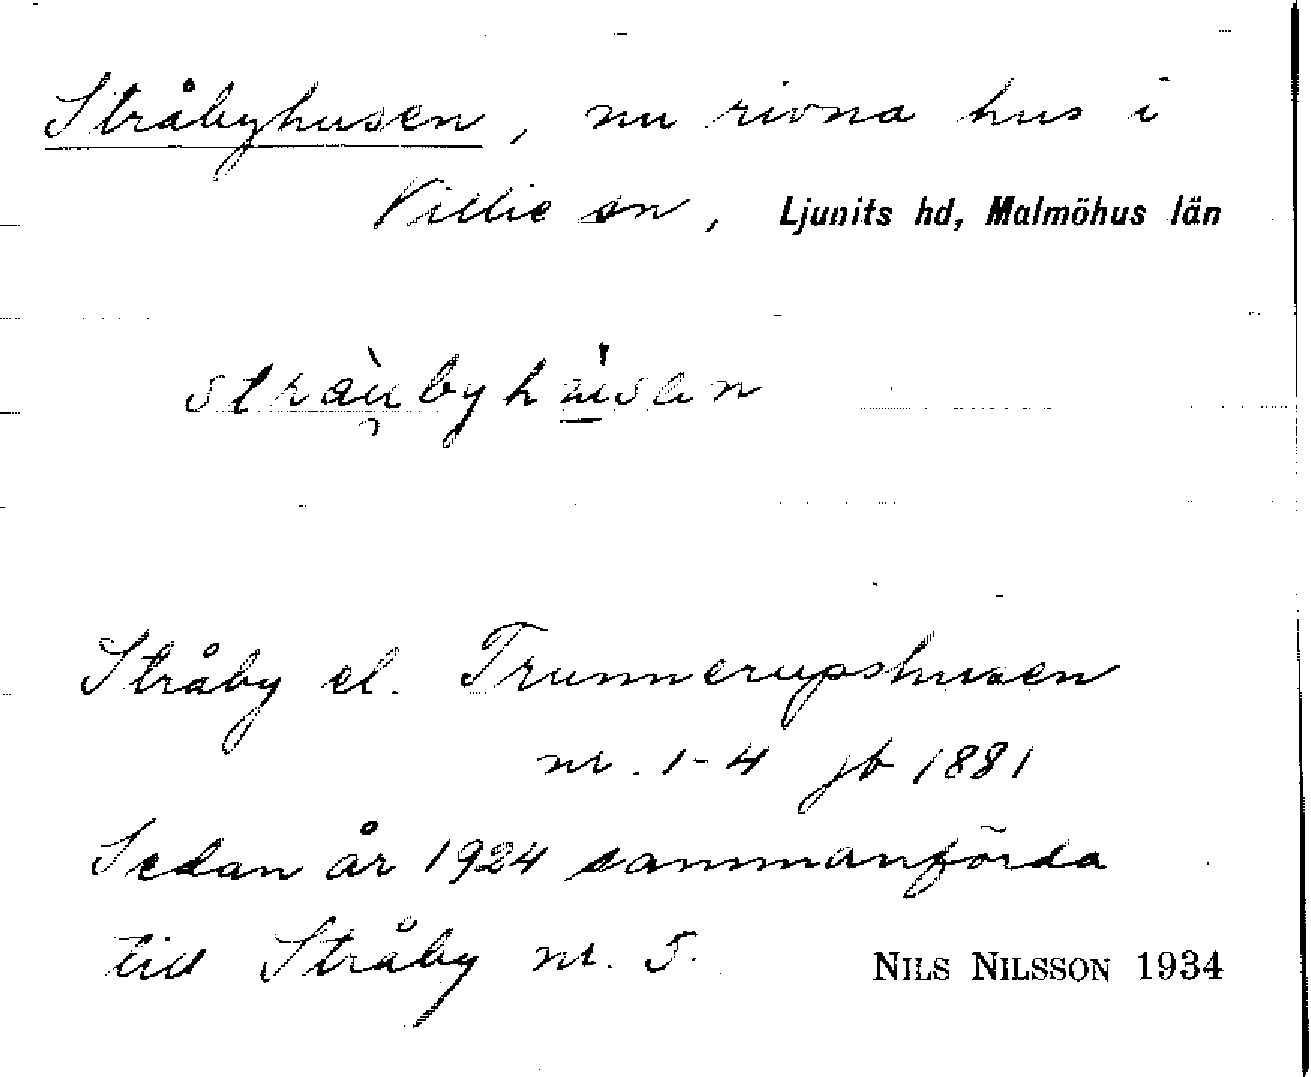 Stråbyhusen, nu rivna hus i
Villie sn, Ljunits hd, Malmöhus län
Stråby el. Trunnerupshusen
nr. 1-4 jb 1881
Sedan år 1924 sammanförda
till Stråby nr. 5.
NILS NILSSON 1934